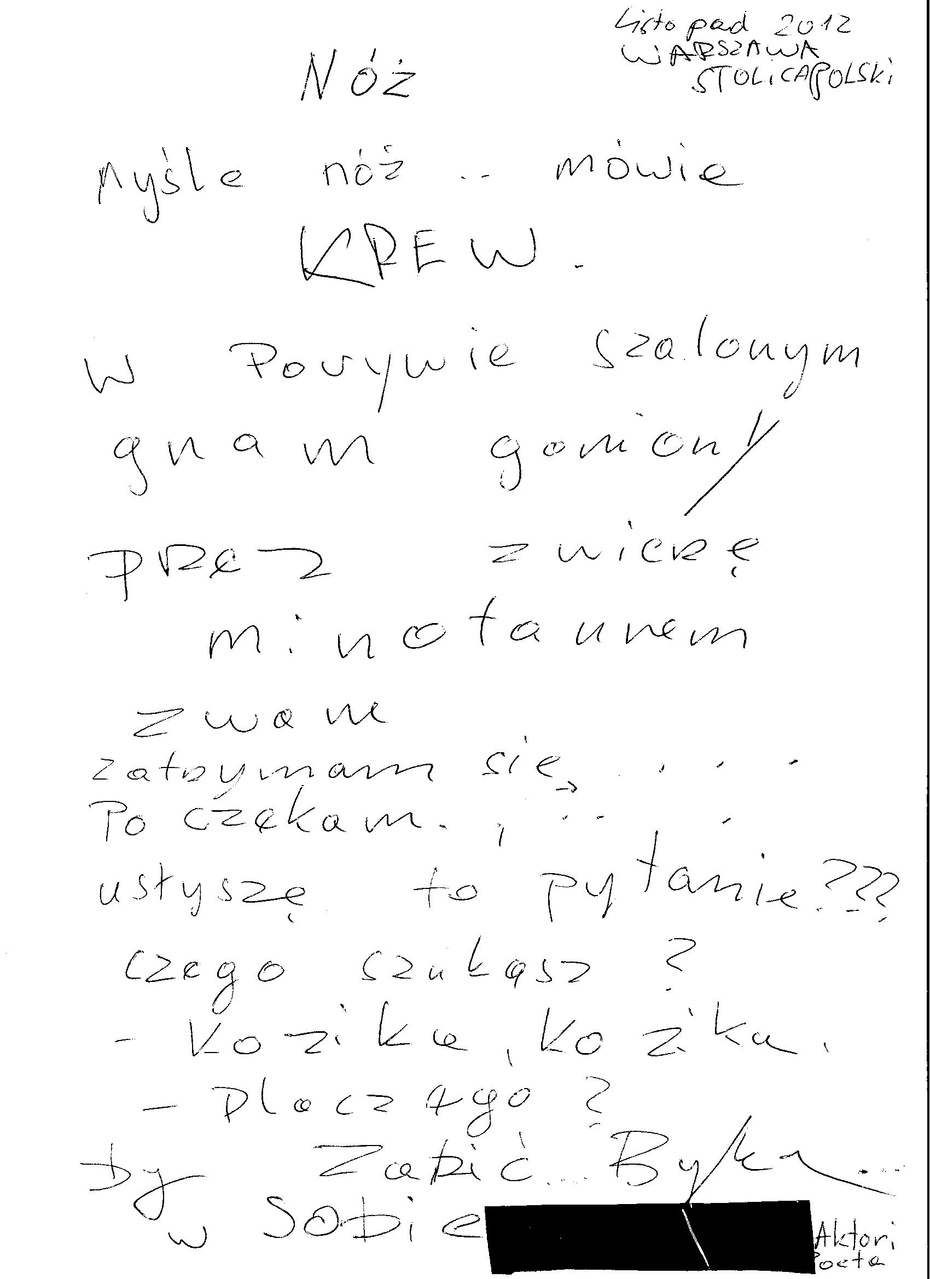 Listopad 2012
WARSZAWA
STOLICA POLSKI
Nóż
Myśle nóż .. mówie
KREW.
w Porywie szalonym
gnam goniony
przez zwierzę
minotaurem
zwane
zatrzymam się . . . .
Po czekam. , .. .
usłyszę to pytanie???
czego szukasz ?
- Kozika, Kozika.
- Dlaczego ?
by Zabić... Byka...
w Sobie
Aktor i
Poeta